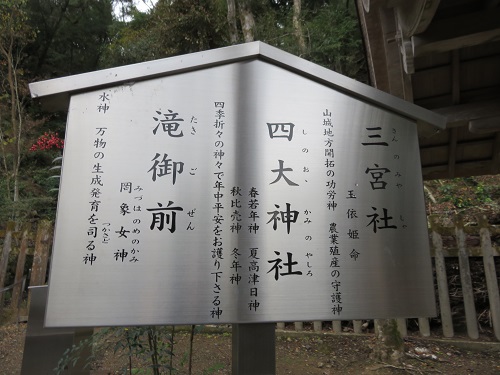 三宮社
さんのみやしゃ
玉依姫命
山城地方開拓の功労神 農業殖産の守護神
四大神社
しのおおかみのやしろ
春若年神 夏高津日神
秋比売神 冬年神
四季折々の神々で年中平安をお護り下さる神
滝御前
たきごぜん
岡象女神
みつはのめのかみ
水神 万物の生成発育を司る神
つかさど